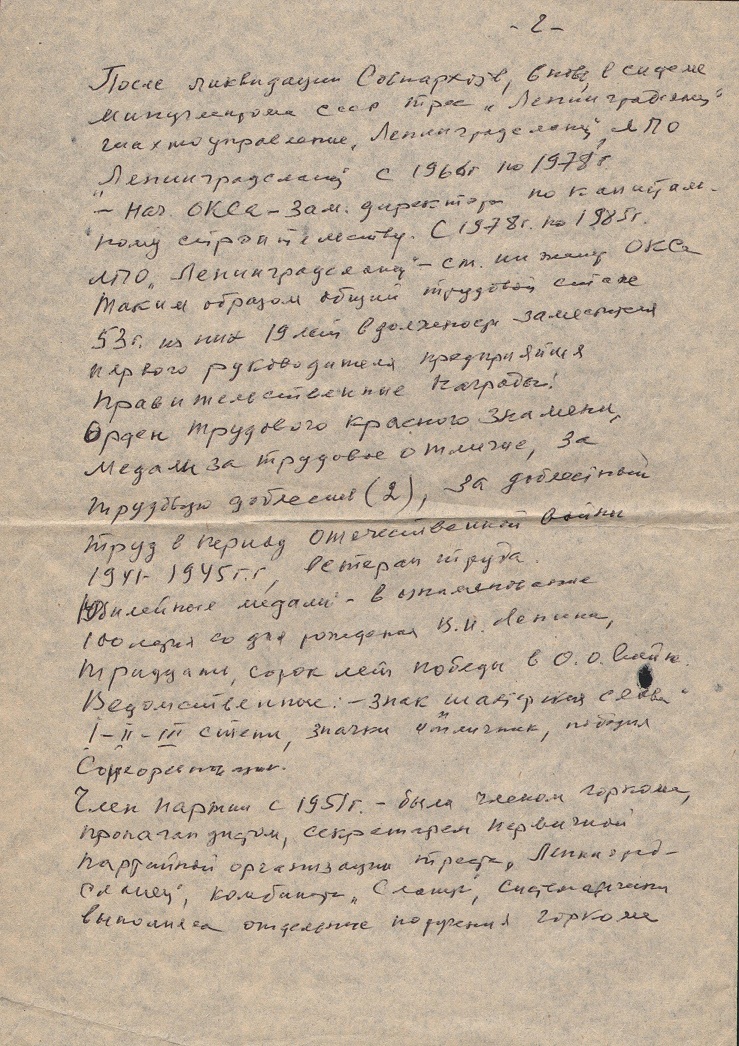 -2-
После ликвидации Совнархозов, вновь в системе
Минуглепрома СССР трест „Ленинградсланец"
шахтоуправление „Ленинградсланец", ЛПО
„Ленинградсланец" с 1966г по 1978г.
– Нач. ОКСа – Зам. директора по капиталь-
ному строительству. С 1978г. по 1985г.
ЛПО „Ленинградсланец" – ст. инженер ОКСа
Таким образом общий трудовой стаж
53г. из них 19 лет в должности заместителя
первого руководителя предприятия
Правительственные Награды:
Орден Трудового Красного Знамени,
Медали за трудовое отличие, за
трудовую доблесть (2), за доблестный
труд в период отечественной войны
1941-1945г.г, ветеран труда.
Юбилейные медали – в ознаменование
100 летия со дня рождения В.И. Ленина,
тридцать, сорок лет победы в О.О. Войне.
Ведомственные: – знак шахтерская слава"
I – II – III степени, значки отличник, победил
Соцсоревнования.
Член партии с 1951г. – была членом горкома,
пропагандистом, секретарем первичной
партийной организации треста „Ленинград-
сланец", комбината „Сланцы", систематически
выполняла отдельные поручения горкома